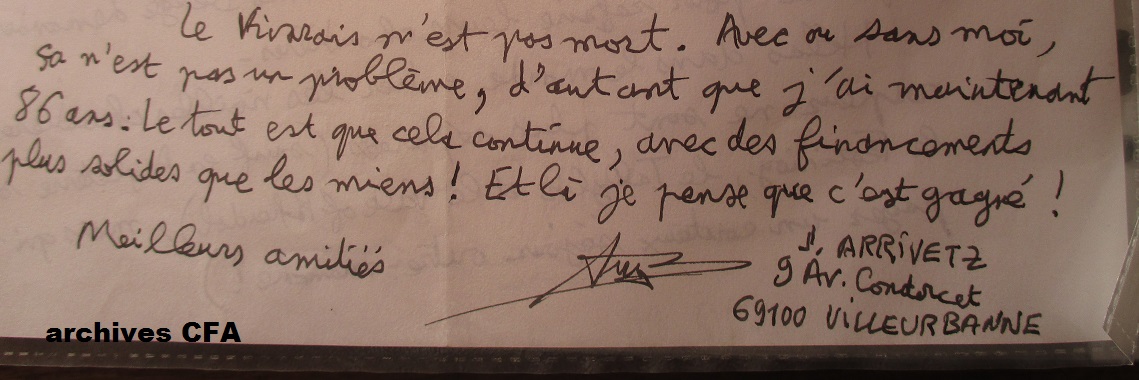 Le Vivarais n'est pas mort. Avec ou sans moi,
sa n'est pas un problème, d'autant que j'ai maintenant
86 ans. Le tout est que cela continue, avec des financements
plus solides que les miens ! Et là je pense que c'est gagné !
Meilleurs amitiés
J. ARRIVETZ
9 Av. Condorcet
69100 VILLEURBANNE
archives CFA